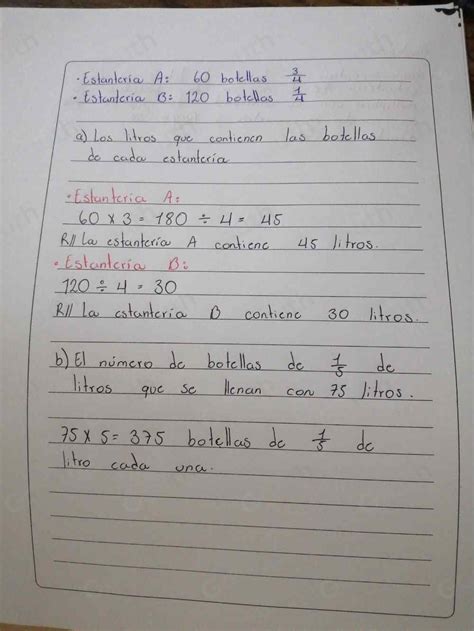 · Estantería A: 60 botellas 3/4
· Estantería B: 120 botellas 1/4
a) Los litros que contienen las botellas
de cada estantería
· Estantería A:
60 x 3 = 180 ÷ 4 = 45
R// La estantería A contiene 45 litros.
· Estantería B:
120 ÷ 4 = 30
R// La estantería B contiene 30 litros.
b) El número de botellas de 1/5 de
litros que se llenan con 75 litros.
75 x 5 = 375 botellas de 1/5 de
litro cada una.